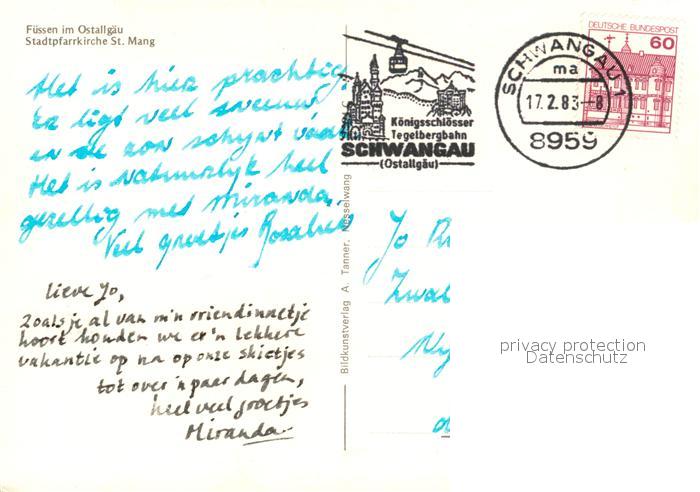 Füssen im Ostallgäu
Stadtpfarrkirche St. Mang
Het is hier prachtig.
Er ligt veel sneeuw
en de zon schijnt
Het is natuurlijk heel
gezellig met Miranda.
Veel groetjes Rosalie
Lieve Jo,
zoals je al van m'n vriendinnetje
hoort houden we er 'n lekkere
vakantie op na op onze skietjes
tot over 'n paar dagen,
heel veel groetjes
Miranda
Bildkunstverlag A. Tanner, Nesselwang
Königsschlösser
Tegelbergbahn
SCHWANGAU
(Ostallgäu)
SCHWANGAU 1
ma
17.2.83-8
8959
DEUTSCHE BUNDESPOST
60
Jo
privacy protection
Datenschutz